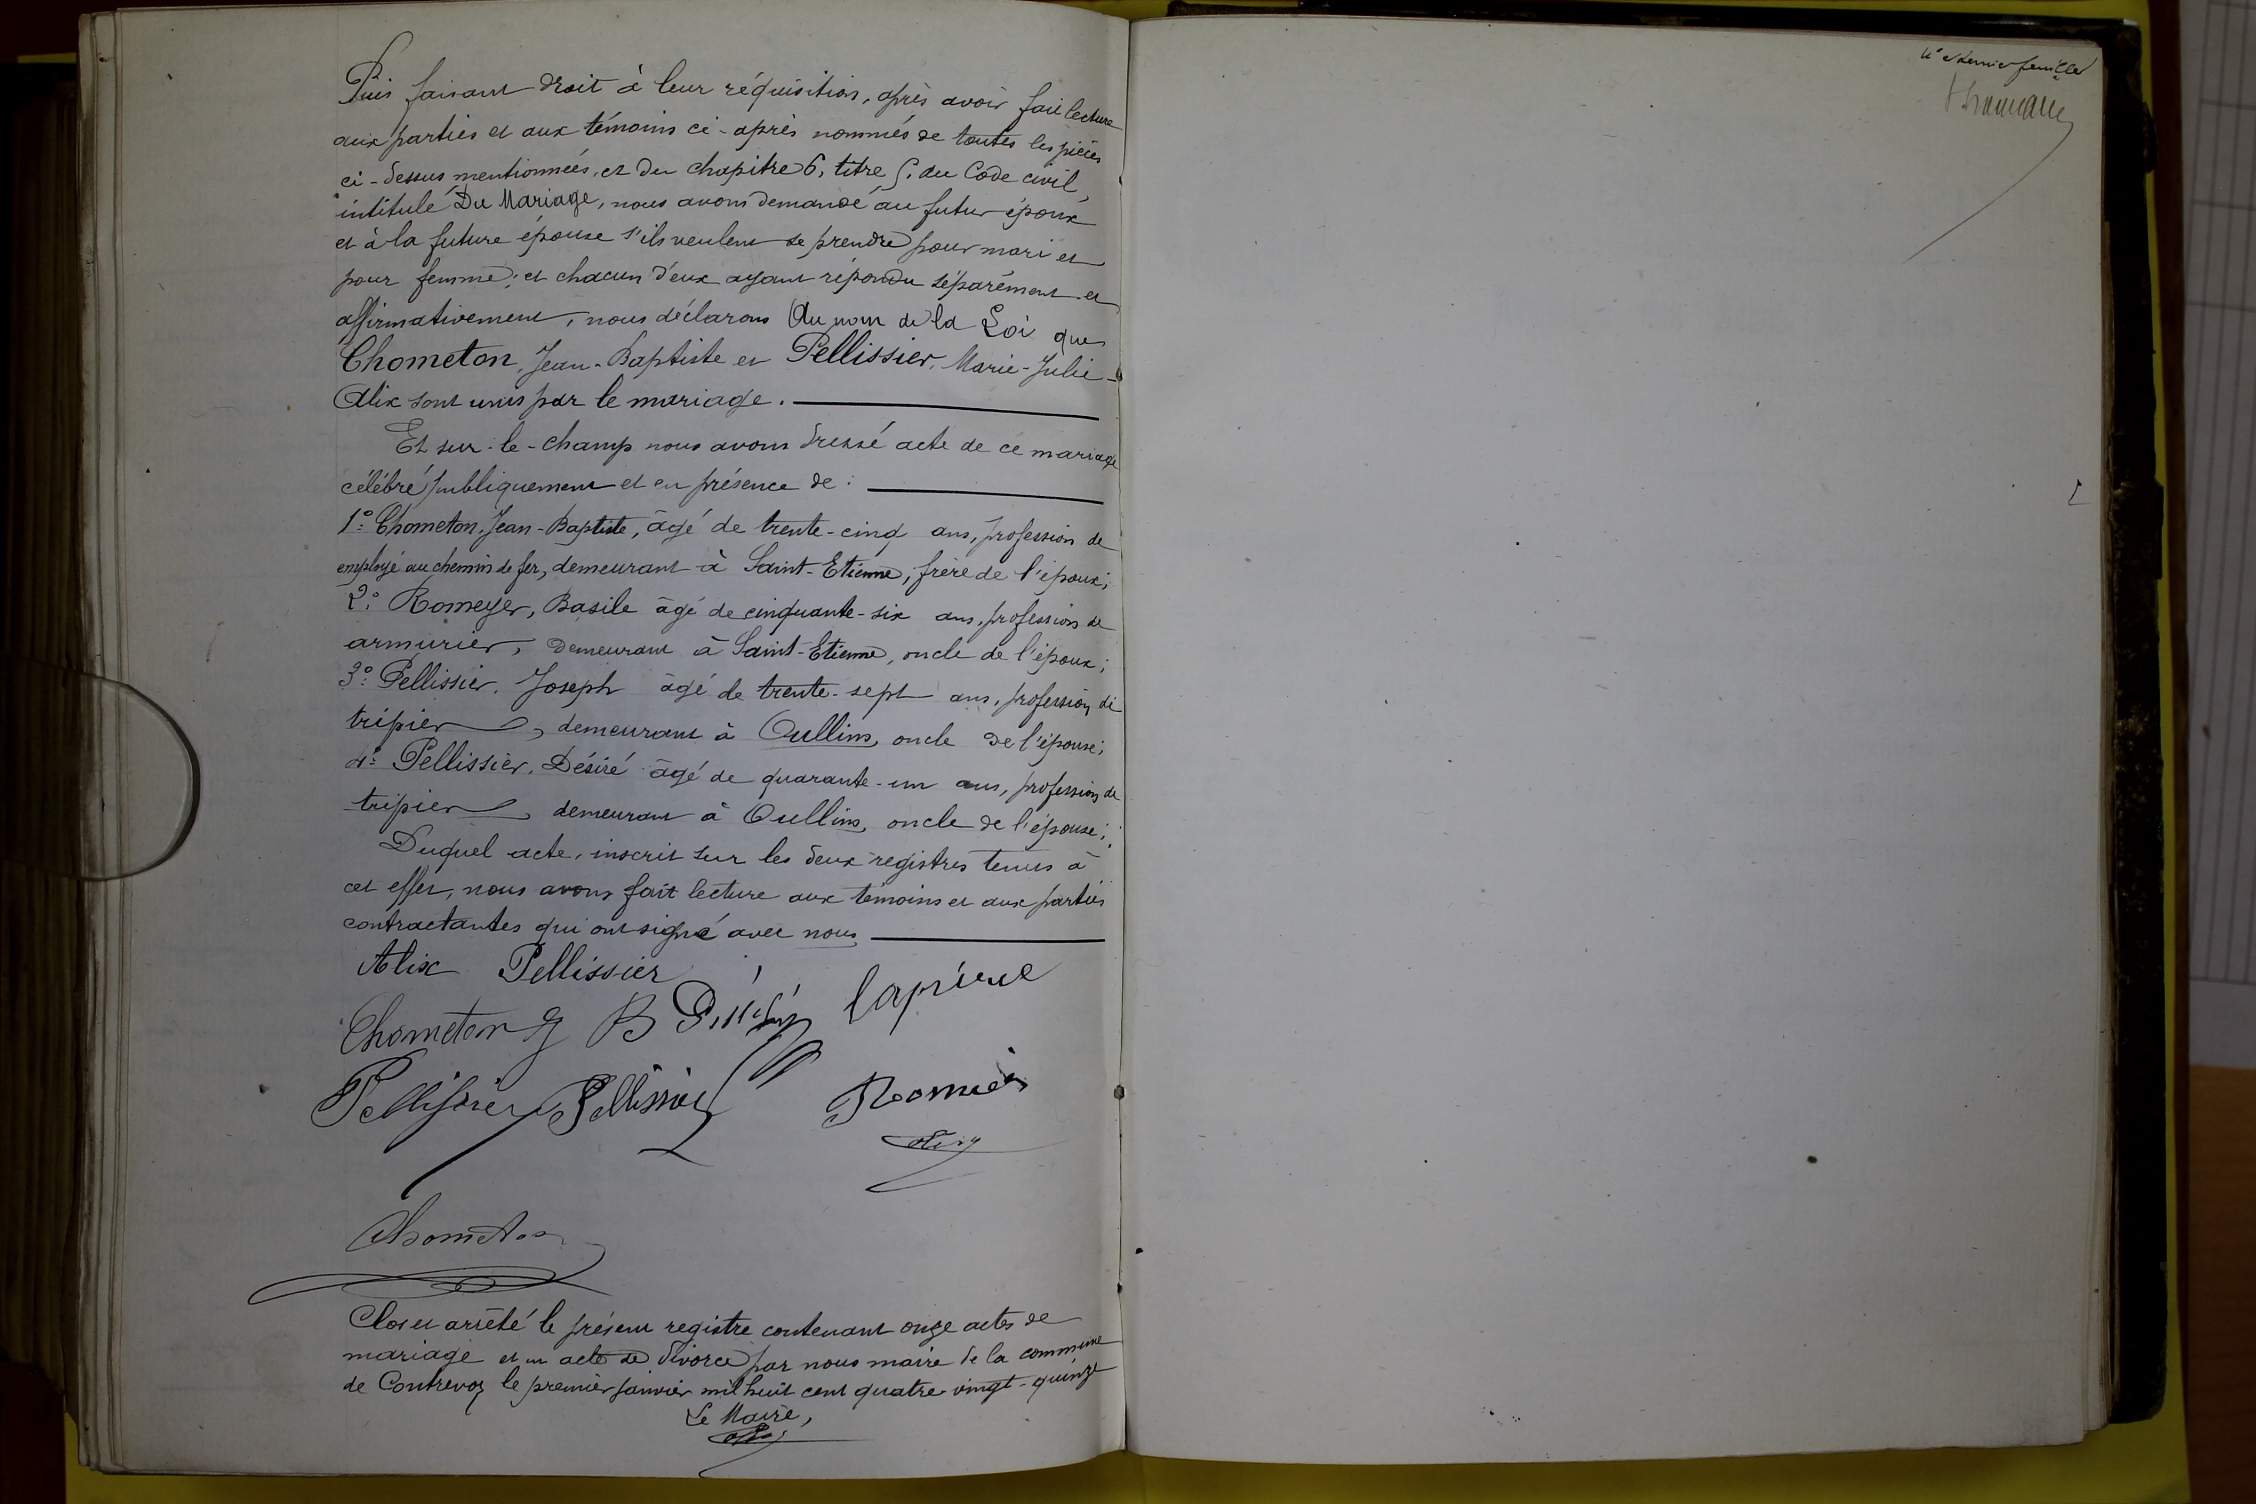 Puis faisant droit à leur réquisition, après avoir fait lecture
aux parties et aux témoins ci-après nommés de toutes les pièces
ci-dessus mentionnées, et du chapitre 6, titre 5, du Code civil,
intitulé Du Mariage, nous avons demandé au futur époux
et à la future épouse s'ils veulent se prendre pour mari et
pour femme; et chacun d'eux ayant répondu séparément et
affirmativement, nous déclarons Au nom de la Loi que
Chometon, Jean-Baptiste et Pellissier, Marie-Julie-
Alix sont unis par le mariage.
Et sur-le-champ nous avons dressé acte de ce mariage
célébré publiquement et en présence de :
1º Chometon, Jean-Baptiste, âgé de trente-cinq ans, profession de
employé au chemin de fer, demeurant à Saint-Etienne, frère de l'époux;
2º Romeyer, Basile âgé de cinquante-six ans, profession de
armurier, demeurant à Saint-Etienne, oncle de l'époux;
3º Pellissier, Joseph âgé de trente-sept ans, profession de
tripier, demeurant à Oullins, oncle de l'épouse;
4º Pellissier, Désiré âgé de quarante-un ans, profession de
tripier, demeurant à Oullins, oncle de l'épouse;
Duquel acte, inscrit sur les deux registres tenus à
cet effet, nous avons fait lecture aux témoins et aux parties
contractantes qui ont signé avec nous
Alix Pellissier
Chometon J B
Pellissier Pellissier
Chometon
Clos et arrêté le présent registre contenant onze actes de
mariage et un acte de divorce par nous maire de la commune
de Contrevoz le premier janvier mil huit cent quatre vingt-quinze
Le Maire,
et dernier feuillet